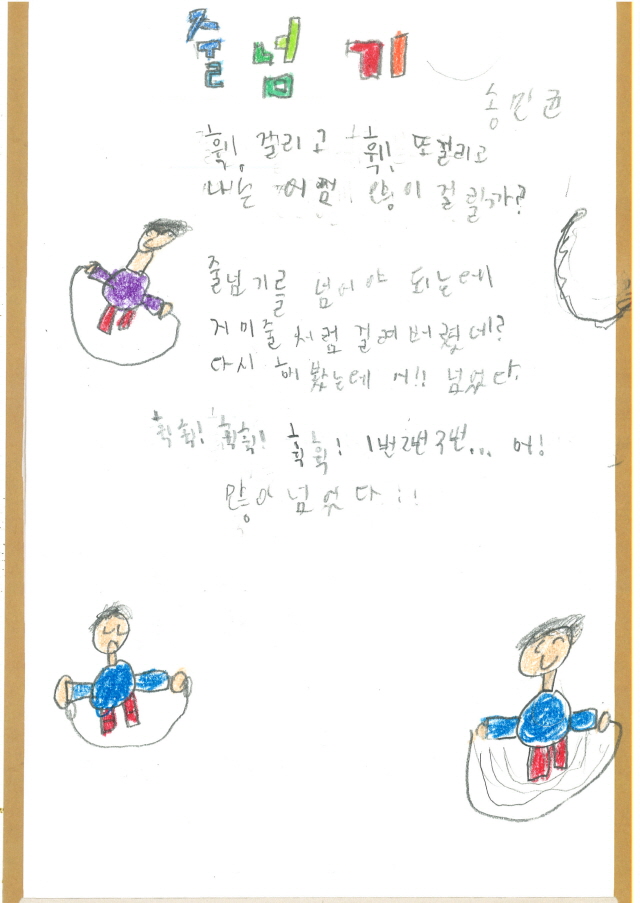 줄넘기
송민균
휙! 걸리고 휙! 또걸리고
나는 어쩜 많이 걸릴까?
줄넘기를 넘어야 되는데
거미줄처럼 걸려버렸네?
다시 해봤는데 어!! 넘었다.
휙휙! 휙휙! 휙휙! 1번2번3번... 어!
많이 넘었다!!